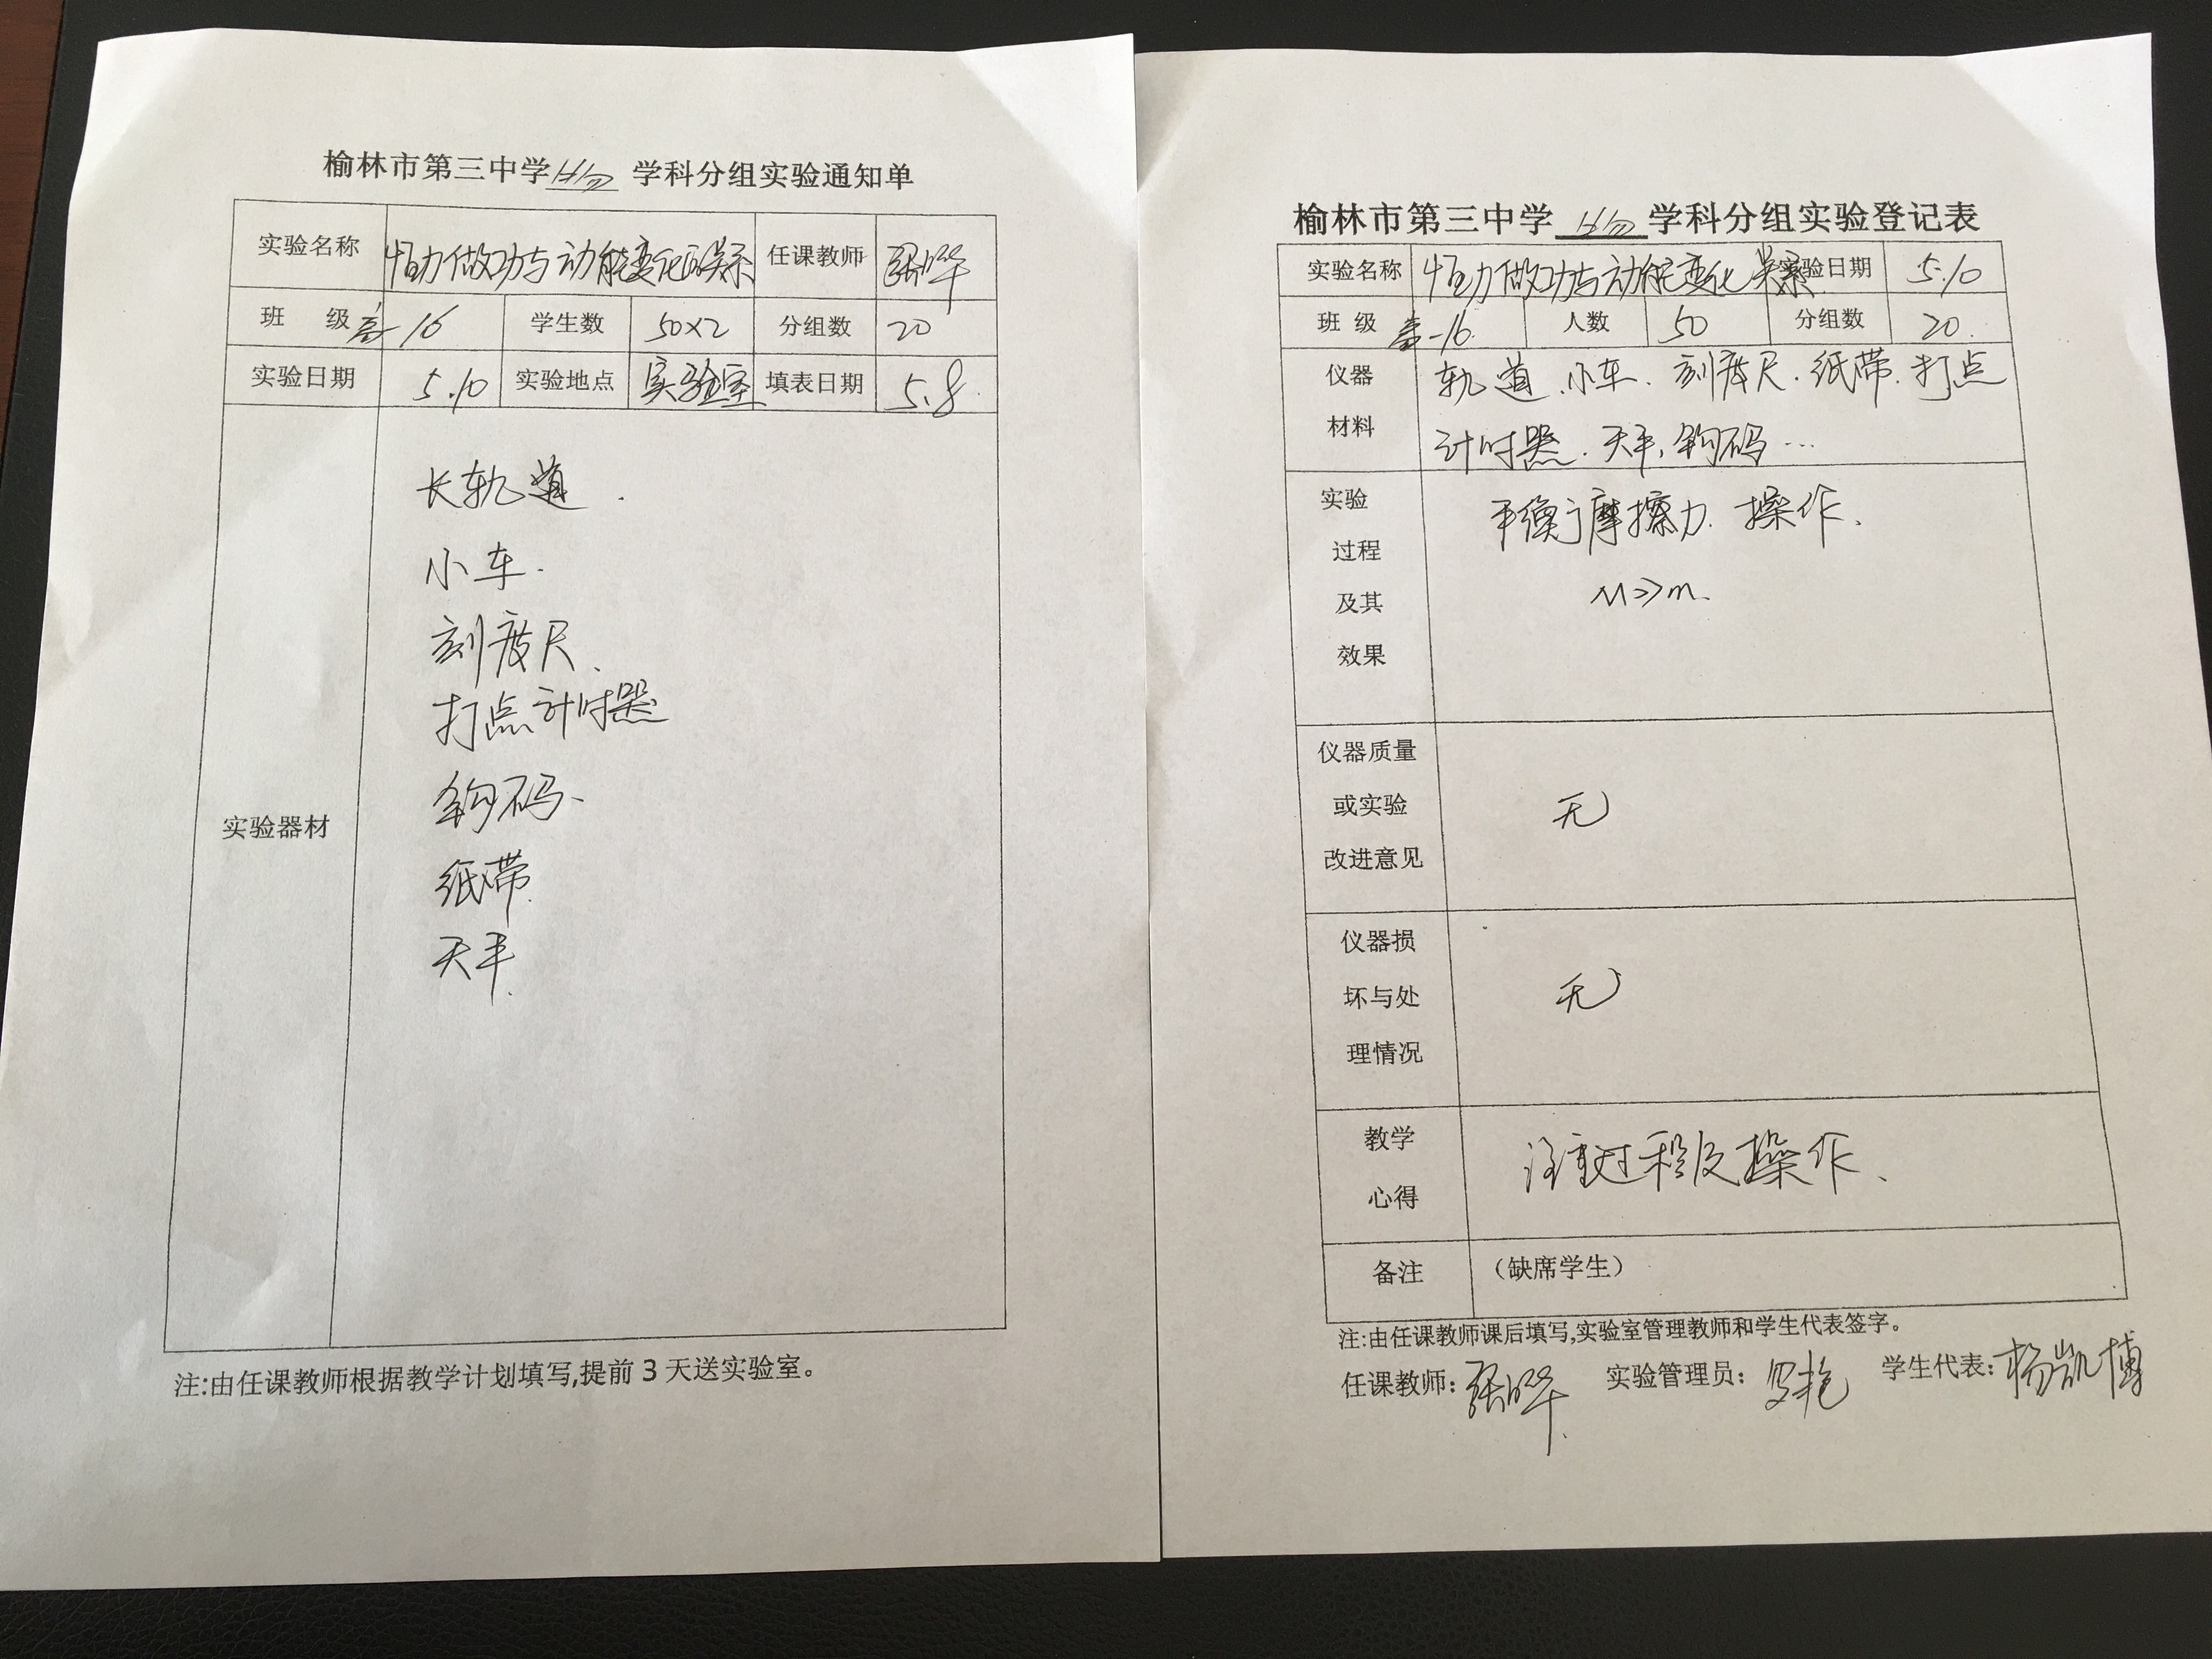 榆林市第三中学物理学科分组实验通知单
实验名称 恒力做功与动能变化的关系 任课教师 张晔
班 级 高一16 学生数 50×2 分组数 20
实验日期 5.10 实验地点 实验室 填表日期 5.8
实验器材
长轨道.
小车.
刻度尺、
打点计时器
钩码、
纸带.
天平.
注:由任课教师根据教学计划填写,提前3天送实验室。
榆林市第三中学物理学科分组实验登记表
实验名称 恒力做功与动能变化关系 实验日期 5.10
班 级 高一16. 人数 50 分组数 20.
仪器
材料
轨道、小车、刻度尺.纸带.打点
计时器.天平,钩码…
实验
过程
及其
效果
平衡摩擦力. 操作、
M≫m.
仪器质量
或实验
改进意见
无
仪器损
坏与处
理情况
无
教学
心得
注重过程及操作、
备注 (缺席学生)
注:由任课教师课后填写,实验室管理教师和学生代表签字。
任课教师: 张晔 实验管理员: 罗艳 学生代表: 杨凯博